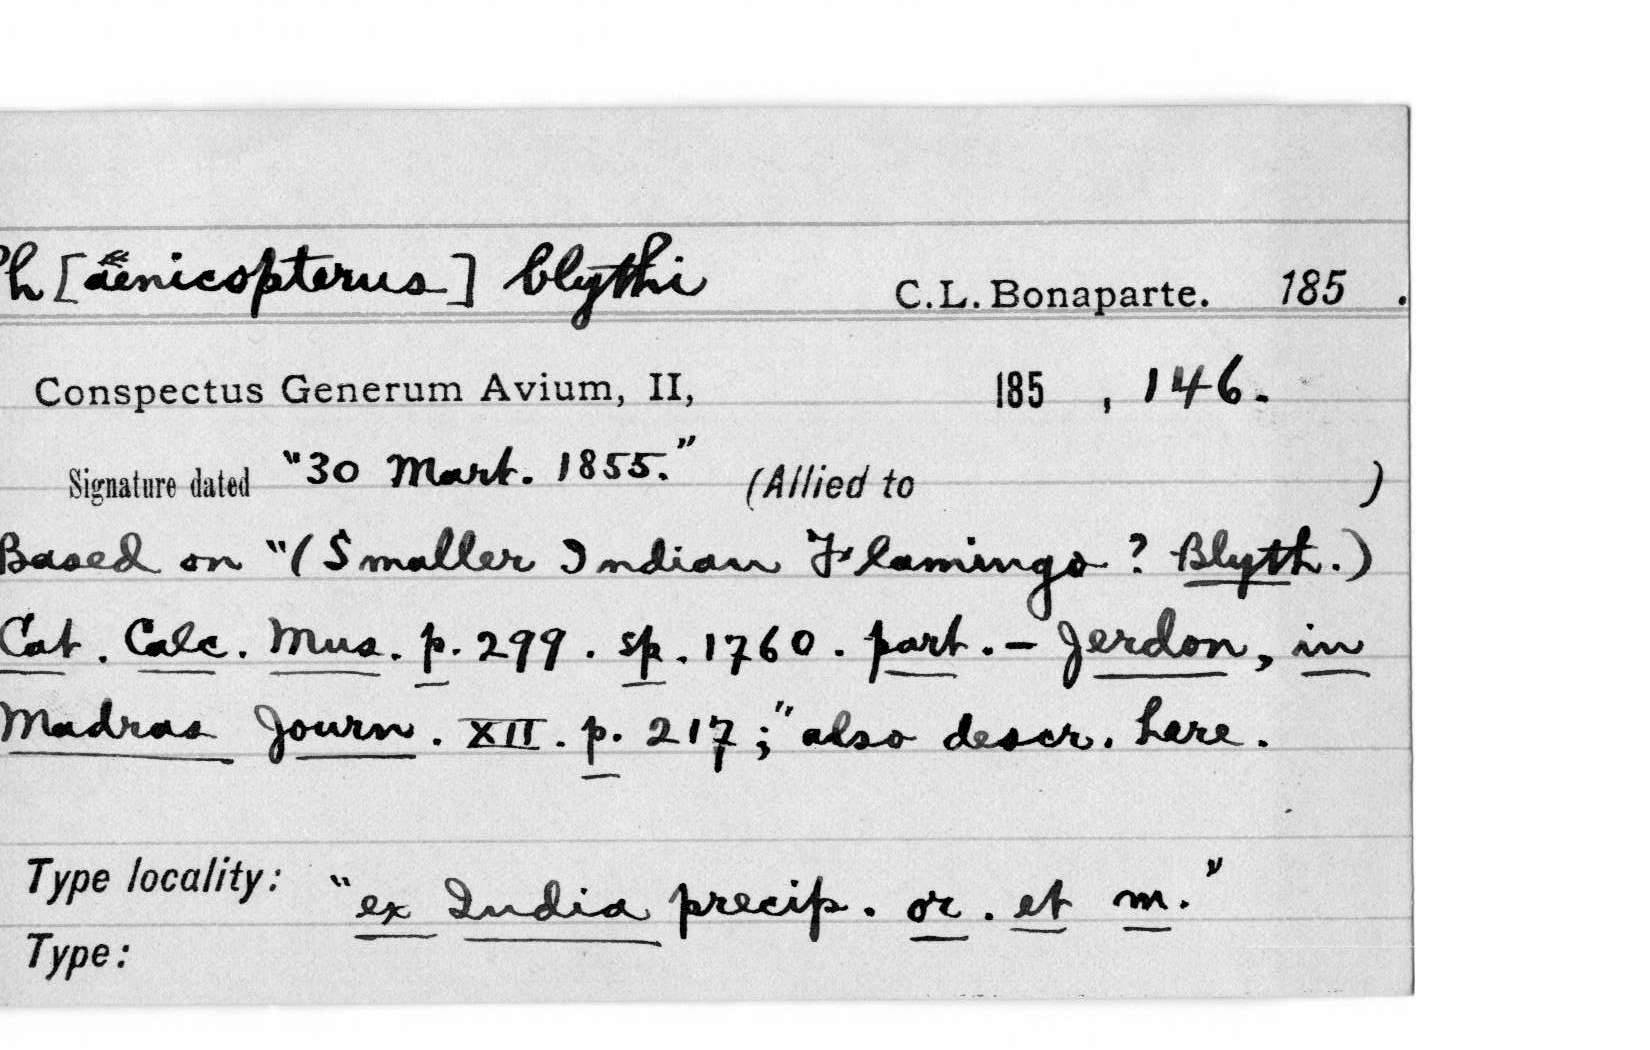 h [aenicopterus] blythi C.L. Bonaparte. 185 .
Conspectus Generum Avium, II, 185 , 146.
Signature dated "30 Mart. 1855." (Allied to )
Based on "(Smaller Indian Flamingo? Blyth.)
Cat. Calc. Mus. p. 299. sp. 1760. part. - Jerdon, in
Madras Journ. XII. p. 217;" also descr. here.
Type locality: "ex India precip. or. et m."
Type: